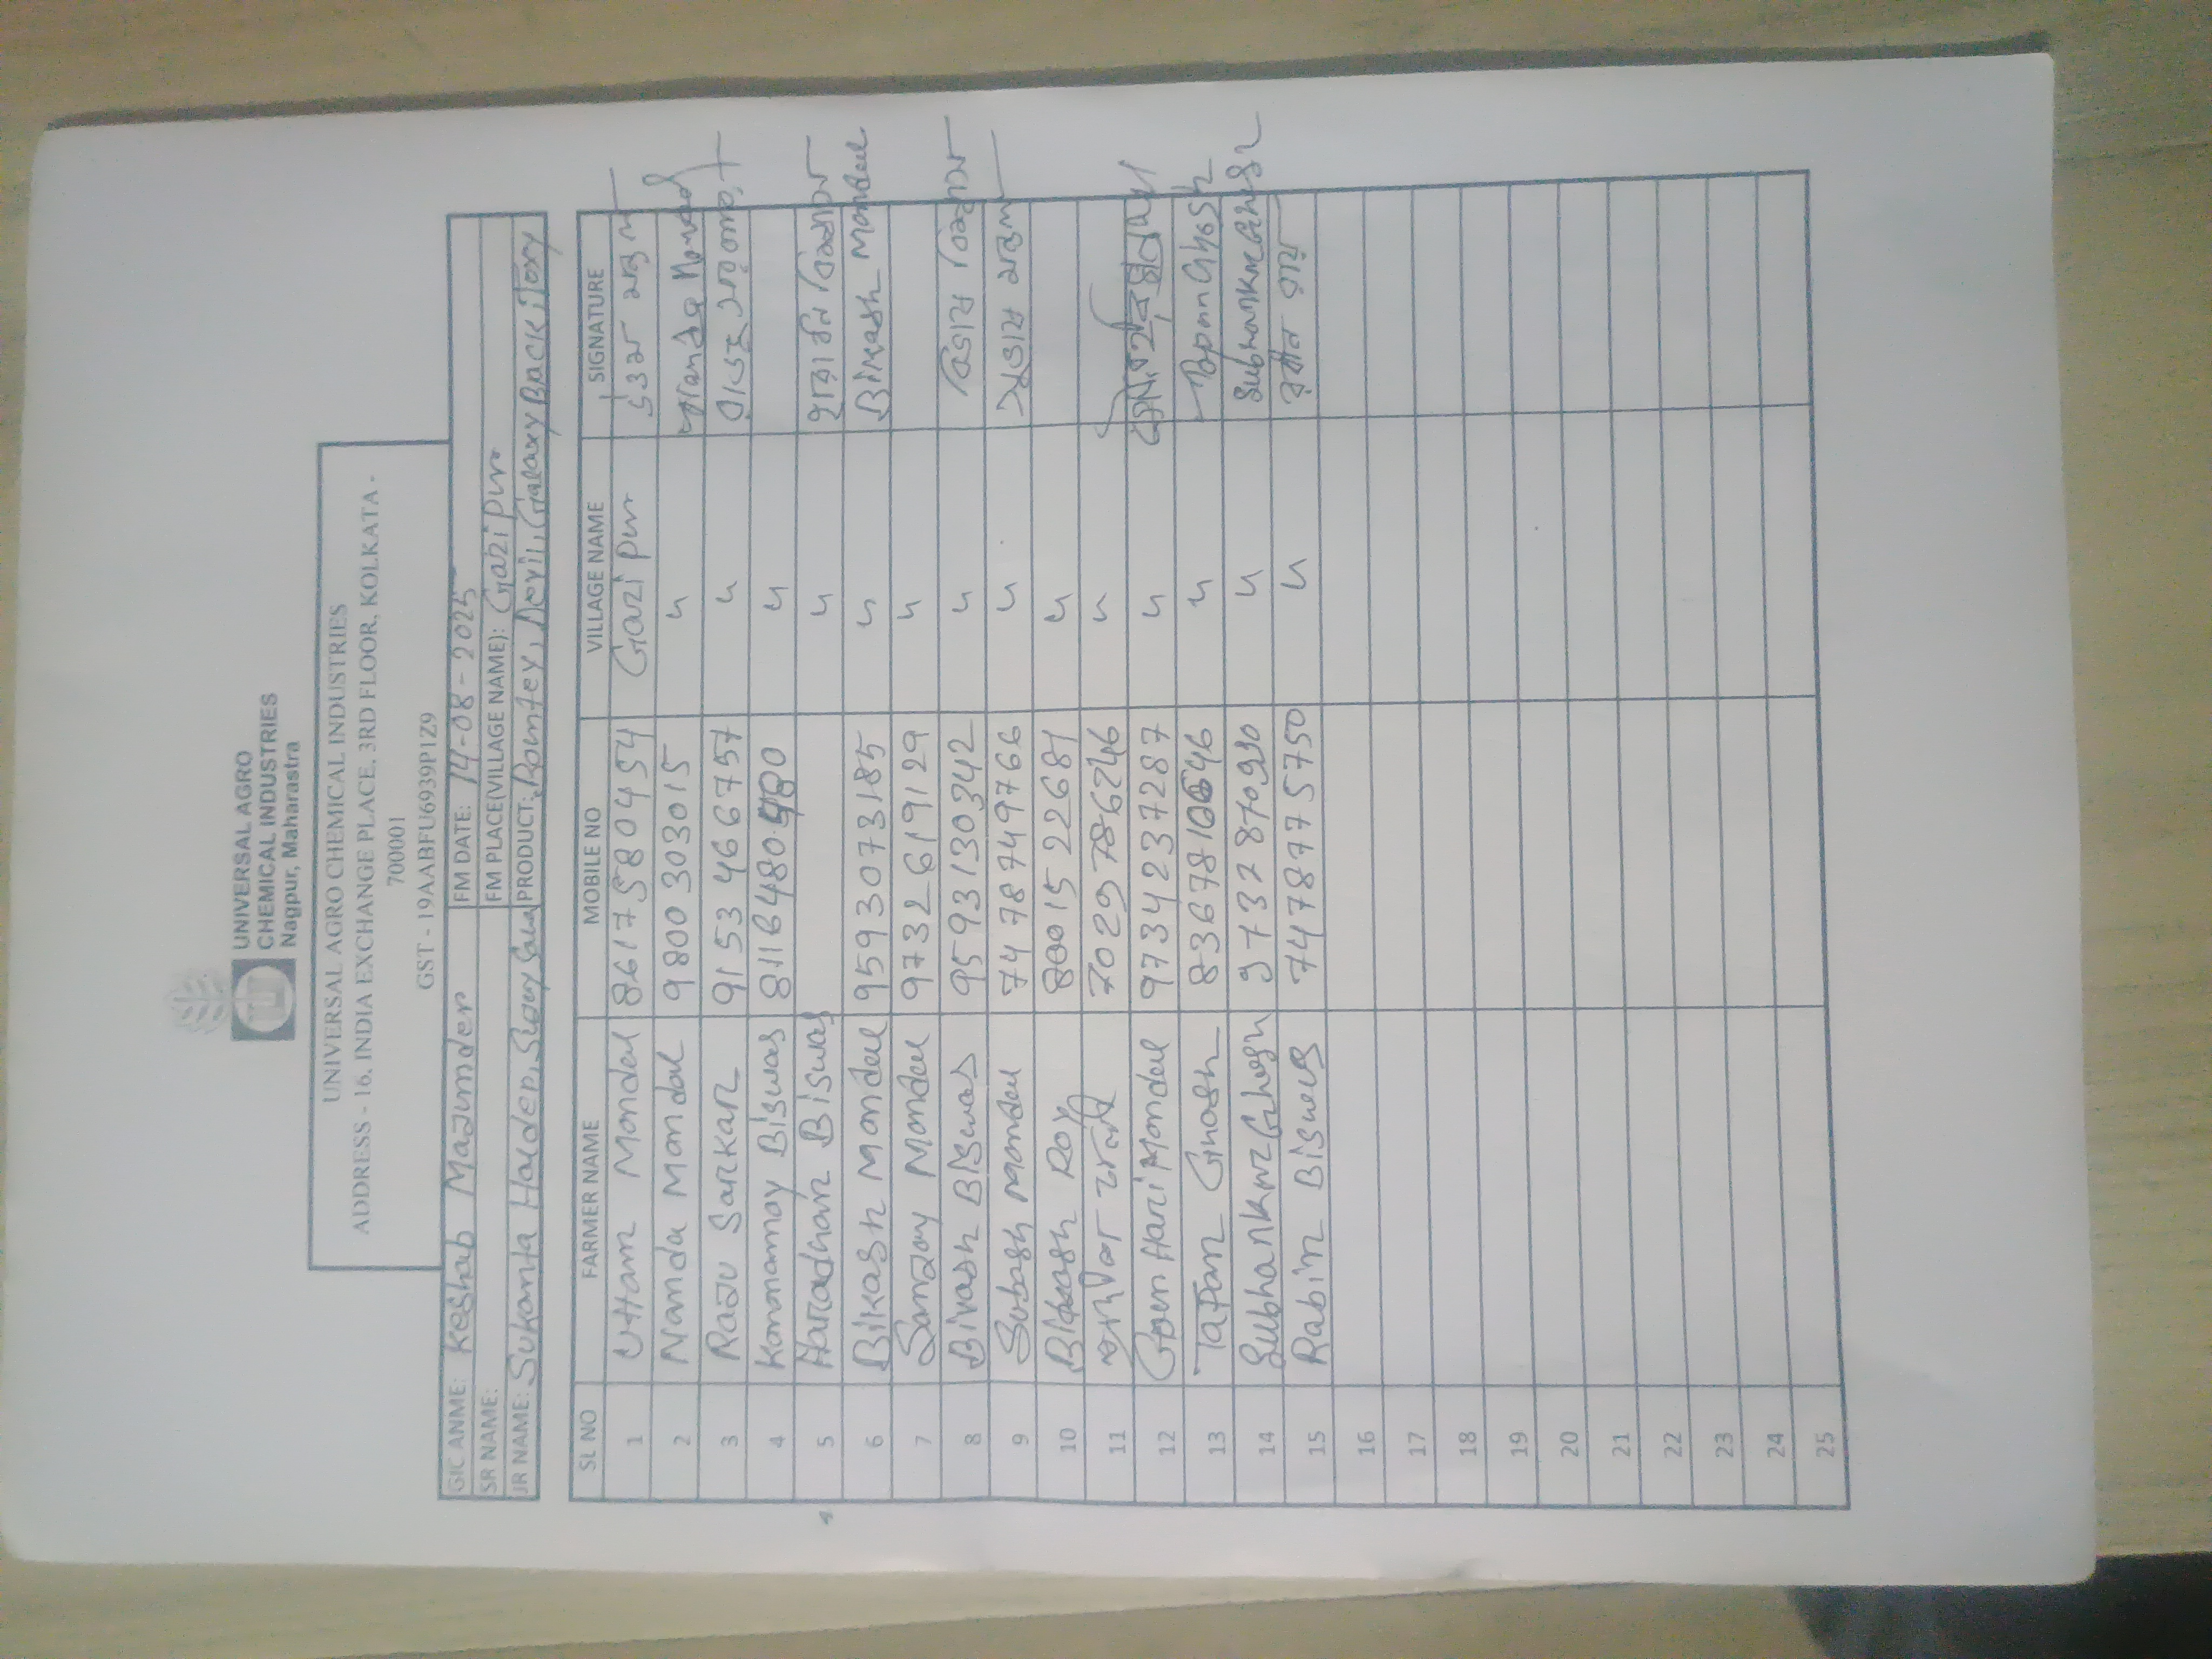 UNIVERSAL AGRO
CHEMICAL INDUSTRIES
Nagpur, Maharastra
UNIVERSAL AGRO CHEMICAL INDUSTRIES
ADDRESS - 16, INDIA EXCHANGE PLACE, 3RD FLOOR, KOLKATA -
700001
GST - 19AABFU6939P1Z9
GIC ANME: Keshab Mazumder FM DATE: 14-08-2025
SR NAME: FM PLACE(VILLAGE NAME): Gazipur
JR NAME: Sukanta Halder, PRODUCT: Devil, Galaxy
SL NO FARMER NAME MOBILE NO VILLAGE NAME SIGNATURE
1 Uttam Mondal 8617580454 Gazipur উত্তম মন্ডল
2 Nanda Mondal 9800303015 " Nanda Mondal
3 Raju Sarkar 9153466757 "
4 Konmamoy Biswas "
5 Haradhan Biswas " হারাধন বিশ্বাস
6 Bikash Mondal 9593073185 " Bikash Mondal
7 Sanjay Mondal 9732619129 "
8 Bivash Biswas 9593130342 " বিভাষ বিশ্বাস
9 Subash Mondal 7478749766 " সুভাষ মন্ডল
10 Bikash Roy 8001522681 "
11 7029786246 "
12 Goen Hari Mondal 9734237287 "
13 Tapan Ghosh " Tapan Ghosh
14 Subhankar Ghosh 9732870990 " Subhankar Ghosh
15 Rabin Biswas 7478775750 " রবীন রায়
16
17
18
19
20
21
22
23
24
25